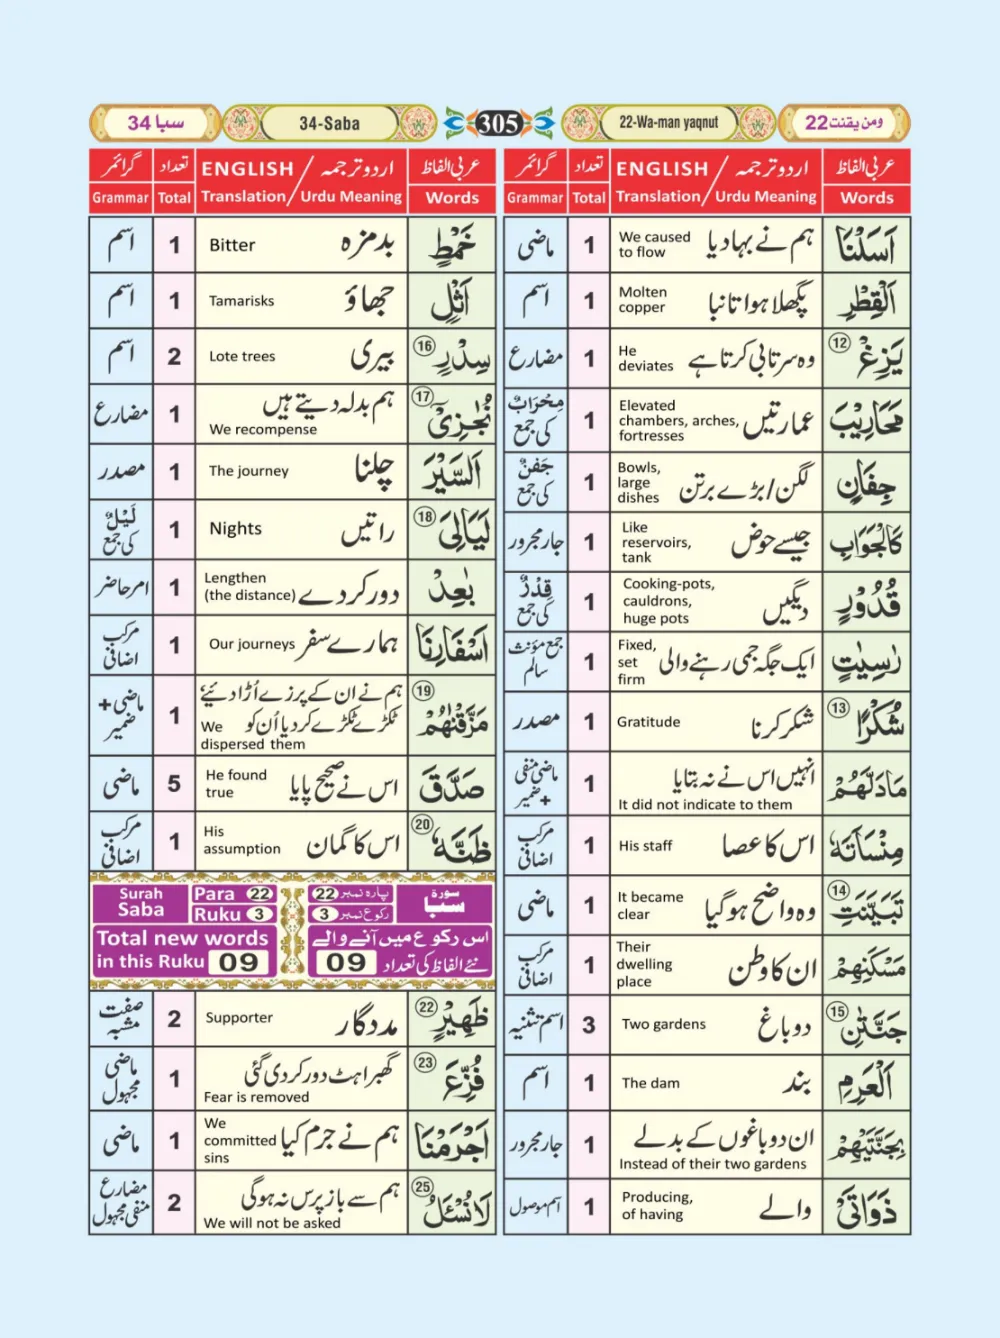 سبا 34
34-Saba
305
22-Wa-man yaqnut
ومن یقنت 22
عربی الفاظ
اردو ترجمہ / ENGLISH
تعداد
گرائمر
Words
Translation / Urdu Meaning
Total
Grammar
اَسَلْنَا
ہم نے بہا دیا
We caused
to flow
1
ماضی
اَلْقِطْرِ
پگھلا ہوا تانبا
Molten
copper
1
اسم
يَزِغْ 12
وہ سرتابی کرتا ہے
He
deviates
1
مضارع
مَحَارِيْبَ
عمارتیں
Elevated
chambers, arches,
fortresses
1
مِحْرَابٌ
کی جمع
جِفَانٍ
لگن / بڑے برتن
Bowls,
large
dishes
1
جَفْنٌ
کی جمع
كَالْجَوَابِ
جیسے حوض
Like
reservoirs,
tank
1
جار مجرور
قُدُوْرٍ
دیگیں
Cooking-pots,
cauldrons,
huge pots
1
قِدْرٌ
کی جمع
رٰسِيٰتٍ
ایک جگہ جمی رہنے والی
Fixed,
set
firm
1
جمع مؤنث
سالم
شُكْرًا 13
شکر کرنا
Gratitude
1
مصدر
مَادَلَّهُمْ
انہیں اس نے نہ بتایا
It did not indicate to them
1
ماضی منفی
+ ضمیر
مِنْسَاَتَهٗ
اس کا عصا
His staff
1
مرکب
اضافی
تَبَيَّنَتِ 14
وہ واضح ہو گیا
It became
clear
1
ماضی
مَسْكَنِهِمْ
ان کا وطن
Their
dwelling
place
1
مرکب
اضافی
جَنَّتٰنِ 15
دو باغ
Two gardens
3
اسم تثنیہ
اَلْعَرِمِ
بند
The dam
1
اسم
بِجَنَّتَيْهِمْ
ان دو باغوں کے بدلے
Instead of their two gardens
1
جار مجرور
ذَوَاتَىْ
والے
Producing,
of having
1
اسم موصول
عربی الفاظ
اردو ترجمہ / ENGLISH
تعداد
گرائمر
Words
Translation / Urdu Meaning
Total
Grammar
خَمْطٍ
بدمزہ
Bitter
1
اسم
اَثْلٍ
جھاؤ
Tamarisks
1
اسم
سِدْرٍ 16
بیری
Lote trees
2
اسم
نُجٰزِىْٓ 17
ہم بدلہ دیتے ہیں
We recompense
1
مضارع
اَلسَّيْرَ
چلنا
The journey
1
مصدر
لَيَالِىَ 18
راتیں
Nights
1
لَيْلٌ
کی جمع
بٰعِدْ
دور کر دے
Lengthen
(the distance)
1
امر حاضر
اَسْفَارِنَا
ہمارے سفر
Our journeys
1
مرکب
اضافی
مَزَّقْنٰهُمْ 19
ہم نے ان کے پرزے اُڑا دئیے
ٹکڑے ٹکڑے کر دیا اُن کو We
dispersed them
1
ماضی +
ضمیر
صَدَّقَ
اس نے صحیح پایا
He found
true
5
ماضی
ظَنَّهٗ 20
اس کا گمان
His
assumption
1
مرکب
اضافی
Surah
Saba
Para 22
Ruku 3
پارہ نمبر 22
رکوع نمبر 3
سورۃ
سبا
Total new words
in this Ruku 09
اس رکوع میں آنے والے
نئے الفاظ کی تعداد 09
ظَهِيْرٍ 22
مددگار
Supporter
2
صفت
مشبہ
فُزِّعَ 23
گھبراہٹ دور کر دی گئی
Fear is removed
1
ماضی
مجہول
اَجْرَمْنَا
ہم نے جرم کیا
We
committed
sins
1
ماضی
لَا نُسْئَلُ 25
ہم سے باز پرس نہ ہو گی
We will not be asked
2
مضارع
منفی مجہول